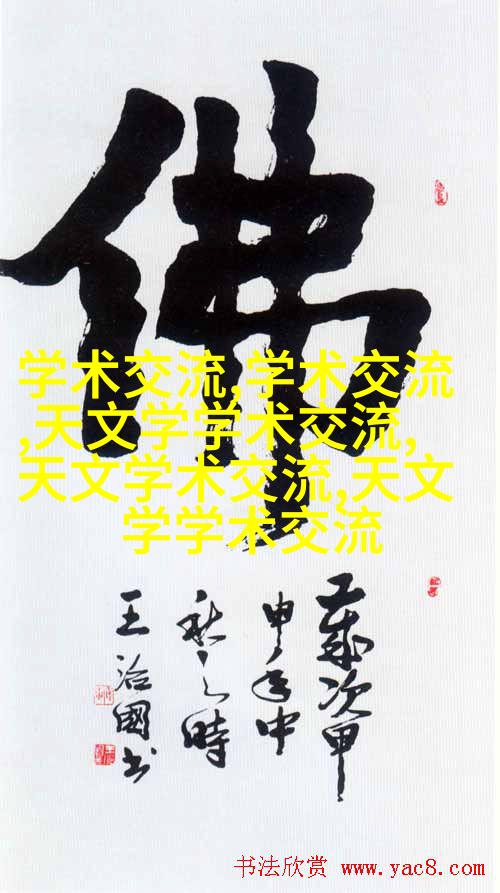 佛
学术交流,学术交流
,天文学学术交流,
天文学术交流,天文
学学术交流
歲次甲
申年中
秋之時
王治國书
书法欣赏 www.yac8.com